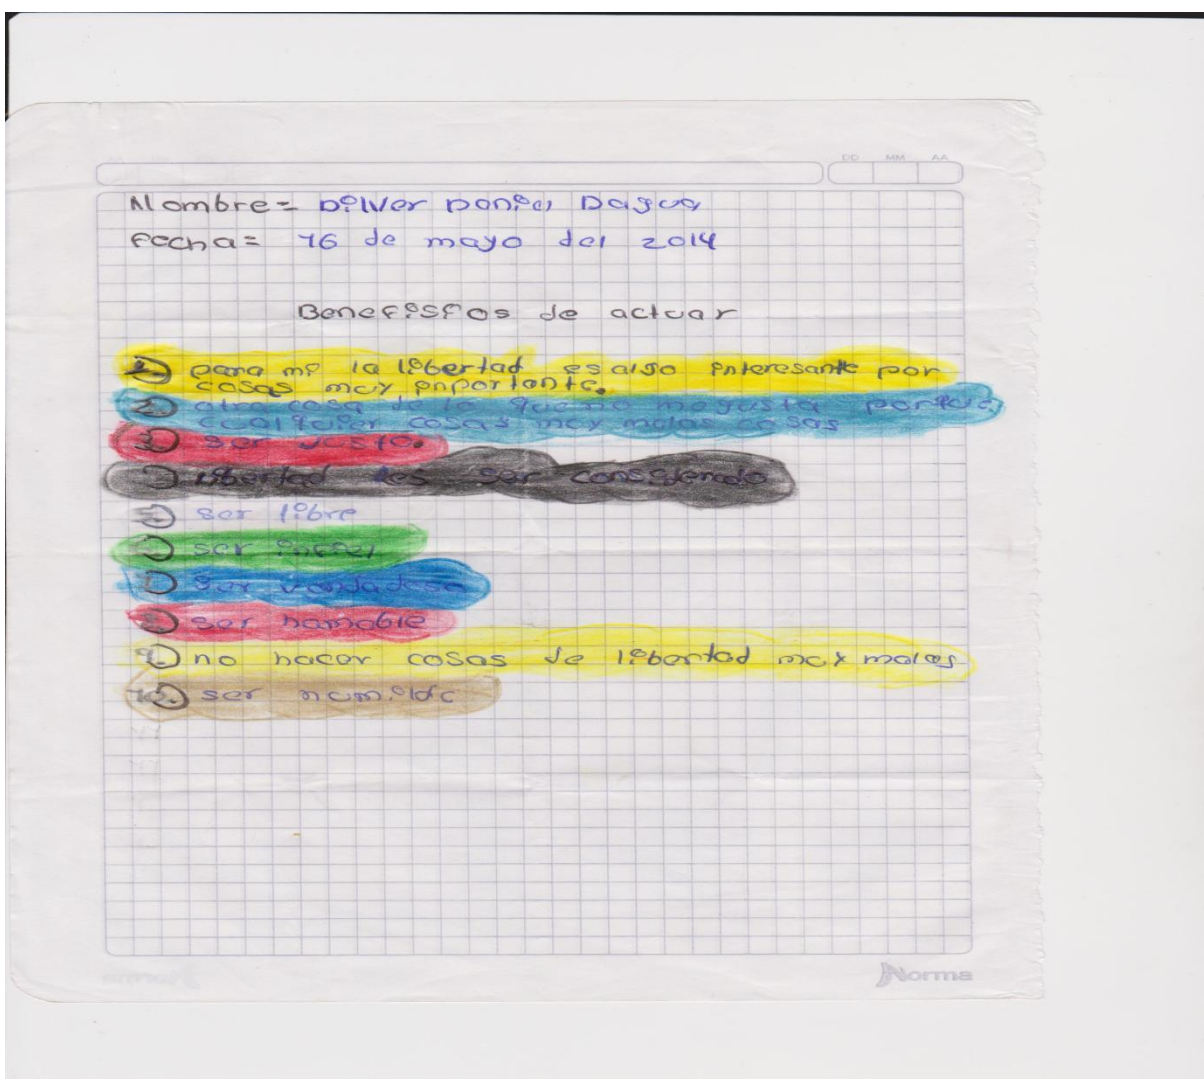 DD MM AA
Nombre= Dilver Daniel Dagua
fecha= 16 de mayo del 2014
Benefisios de actuar
1) para mi la libertad es algo interesante por
cosas muy inportante.
2) otra cosa de la que no me gusta porque
cualquier cosas muy malas cosas
3) ser justo.
libertad es ser considerado
5) ser libre
ser
ser
8) ser hamable
9.) no hacer cosas de libertad muy malas
10.) ser
Norma